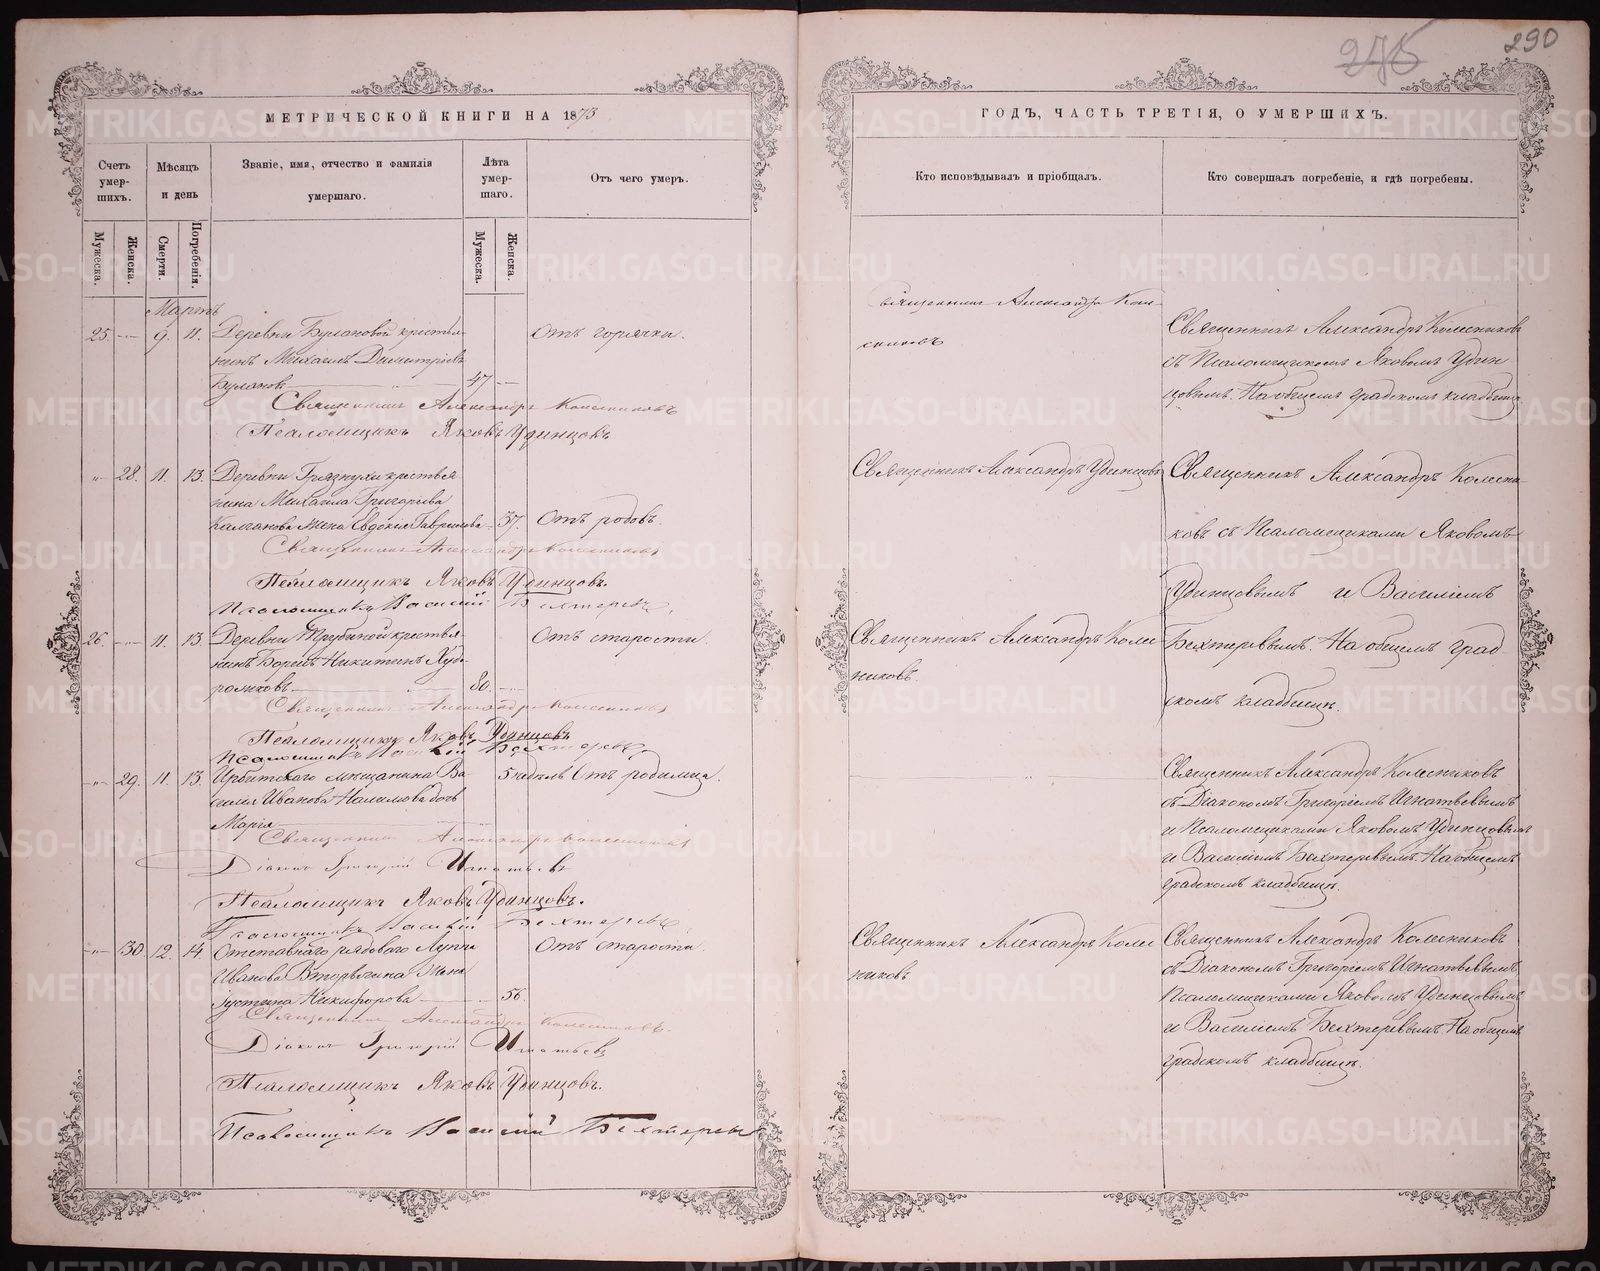 290
МЕТРИЧЕСКОЙ КНИГИ НА 1873
ГОДЪ, ЧАСТЬ ТРЕТІЯ, О УМЕРШИХЪ.
Счетъ умер-шихъ.
Мѣсяцъ и день
Званіе, имя, отчество и фамилія умершаго.
Лѣта умер-шаго.
Отъ чего умеръ.
Кто исповѣдывалъ и пріобщалъ.
Кто совершалъ погребеніе, и гдѣ погребены.
Мужеска.
Женска.
Смерти.
Погребенія.
Мужеска.
Женска.
Мартъ
25. 9. 11. Деревни Булановой крестья-
нинъ Михаилъ Димитріевъ
Булановъ 47
Отъ горячки.
Священникъ Александръ Колесниковъ
Псаломщикъ Яковъ Удинцовъ
Священникъ Александръ Коле-
сниковъ
Священникъ Александръ Колесниковъ
съ Псаломщикомъ Яковомъ Удин-
цовымъ. На общемъ градскомъ кладбищѣ
28. 11. 13. Деревни Грязнухи крестья
нина Михаила Григорьева
Калганова жена Евдокія Гаврилова 37. Отъ родовъ.
Священникъ Александръ Колесниковъ
Псаломщикъ Яковъ Удинцовъ.
Псаломщикъ Василій Бехтеревъ.
Священникъ Александръ Удинцовъ
Священникъ Александръ Колесни-
ковъ съ Псаломщиками Яковомъ
Удинцовымъ и Василіемъ
Бехтеревымъ. На общемъ град-
скомъ кладбищѣ.
26. 11. 13. Деревни Трубиной крестья-
нинъ Борисъ Никитинъ Худо-
рожковъ 80.
Отъ старости
Священникъ Александръ Колесниковъ
Псаломщикъ Яковъ Удинцовъ
Псаломщикъ Василій Бехтеревъ
Священникъ Александръ Колес-
никовъ.
29. 11. 13. Ирбитскаго мѣщанина Ва
силія Иванова Налимова дочь
Марія
5 недѣль Отъ родимца.
Священникъ Александръ Колесниковъ
Діаконъ Григорій Игнатьевъ
Псаломщикъ Яковъ Удинцовъ.
Псаломщикъ Василій Бехтеревъ
Священникъ Александръ Колесниковъ
съ Діакономъ Григоріемъ Игнатьевымъ
и Псаломщиками Яковомъ Удинцовымъ
и Василіемъ Бехтеревымъ. На общемъ
градскомъ кладбищѣ.
30. 12. 14. Отставнаго рядового Луппа
Иванова Вторыгина жена
Іустина Никифорова 56.
Отъ старости.
Священникъ Александръ Колесниковъ.
Діаконъ Григорій Игнатьевъ
Псаломщикъ Яковъ Удинцовъ.
Псаломщикъ Василій Бехтеревъ
Священникъ Александръ Колес
никовъ
Священникъ Александръ Колесниковъ
съ Діакономъ Григоріемъ Игнатьевымъ
Псаломщиками Яковомъ Удинцовымъ
и Василіемъ Бехтеревымъ На общемъ
градскомъ кладбищѣ.
METRIKI.GASO-URAL.RU